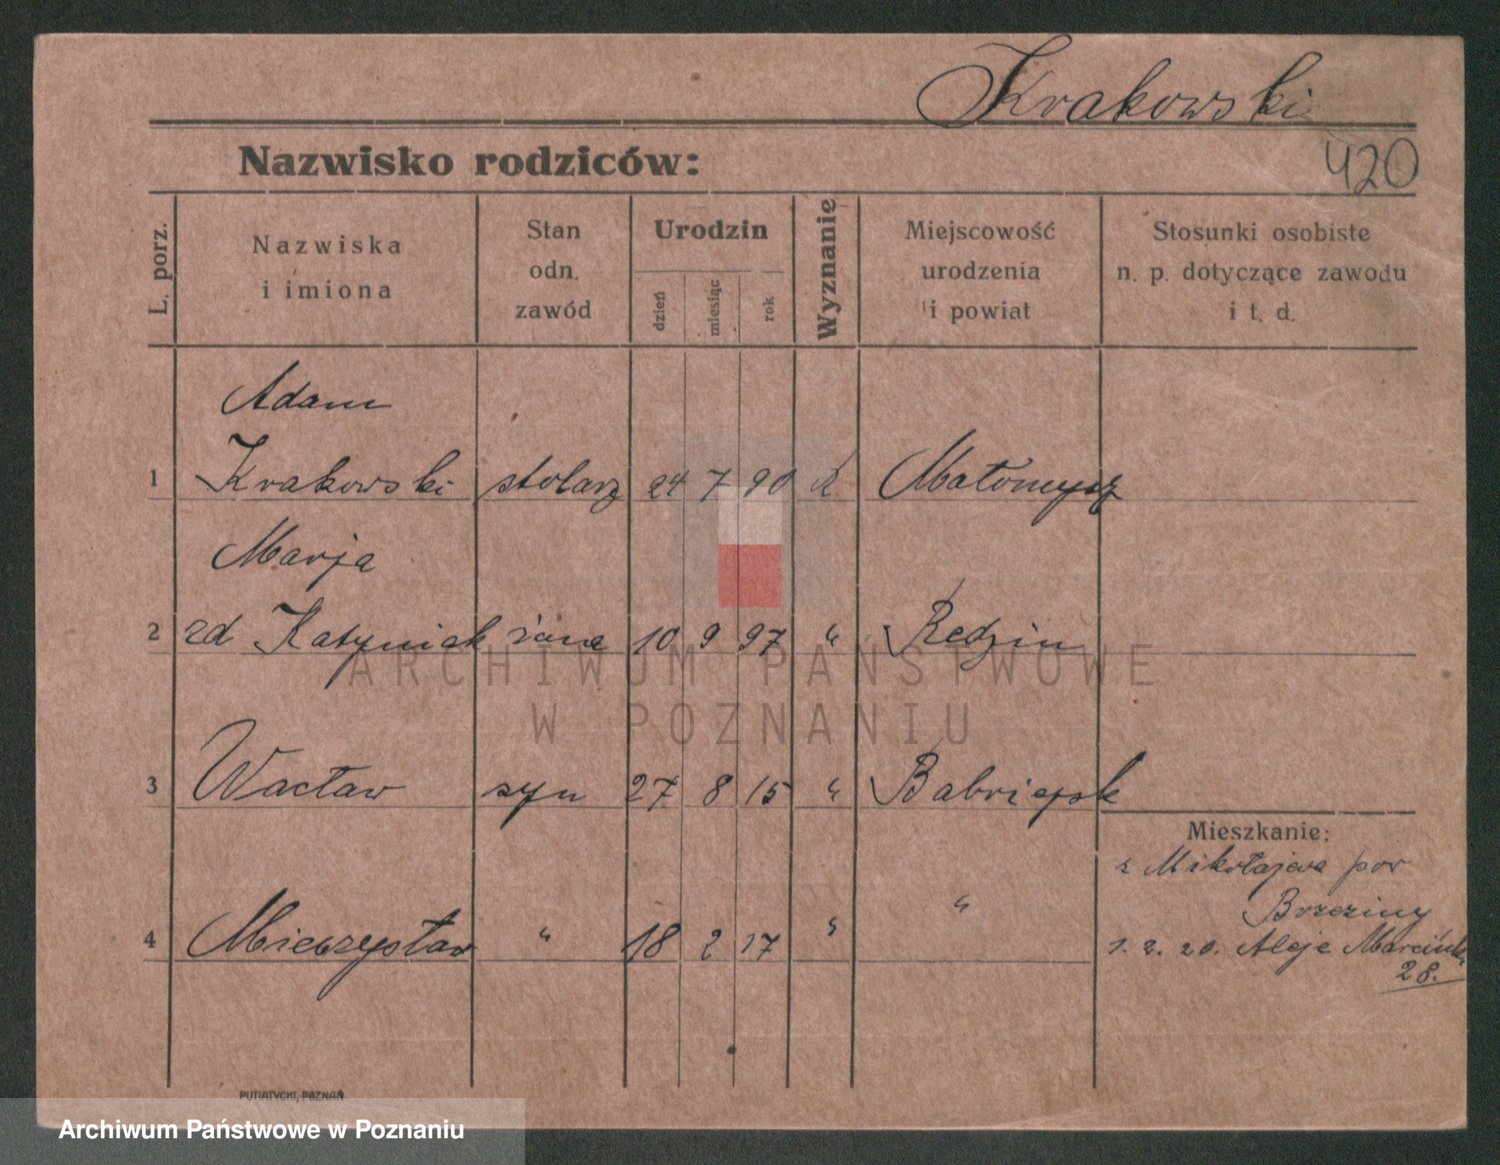 Krakowski
Nazwisko rodziców:
420
L. porz.
Nazwiska
i imiona
Stan
odn.
zawód
Urodzin
dzień
miesiąc
rok
Wyznanie
Miejscowość
urodzenia
i powiat
Stosunki osobiste
n. p. dotyczące zawodu
i t. d.
Adam
1 Krakowski stolarz 24 7 90 k Małomysz
Marja
2 zd Katyniak żona 10 9 97 " Redzin
ARCHIWUM PAŃSTWOWE
W POZNANIU
3 Wacław syn 27 8 15 "
Mieszkanie:
z Mikołajewa pow
Brzeziny
4 Mieczysław " 18 2 17 " "
1. 2. 20. Aleje Marcink.
28.
PUTIATYCKI, POZNAŃ
Archiwum Państwowe w Poznaniu